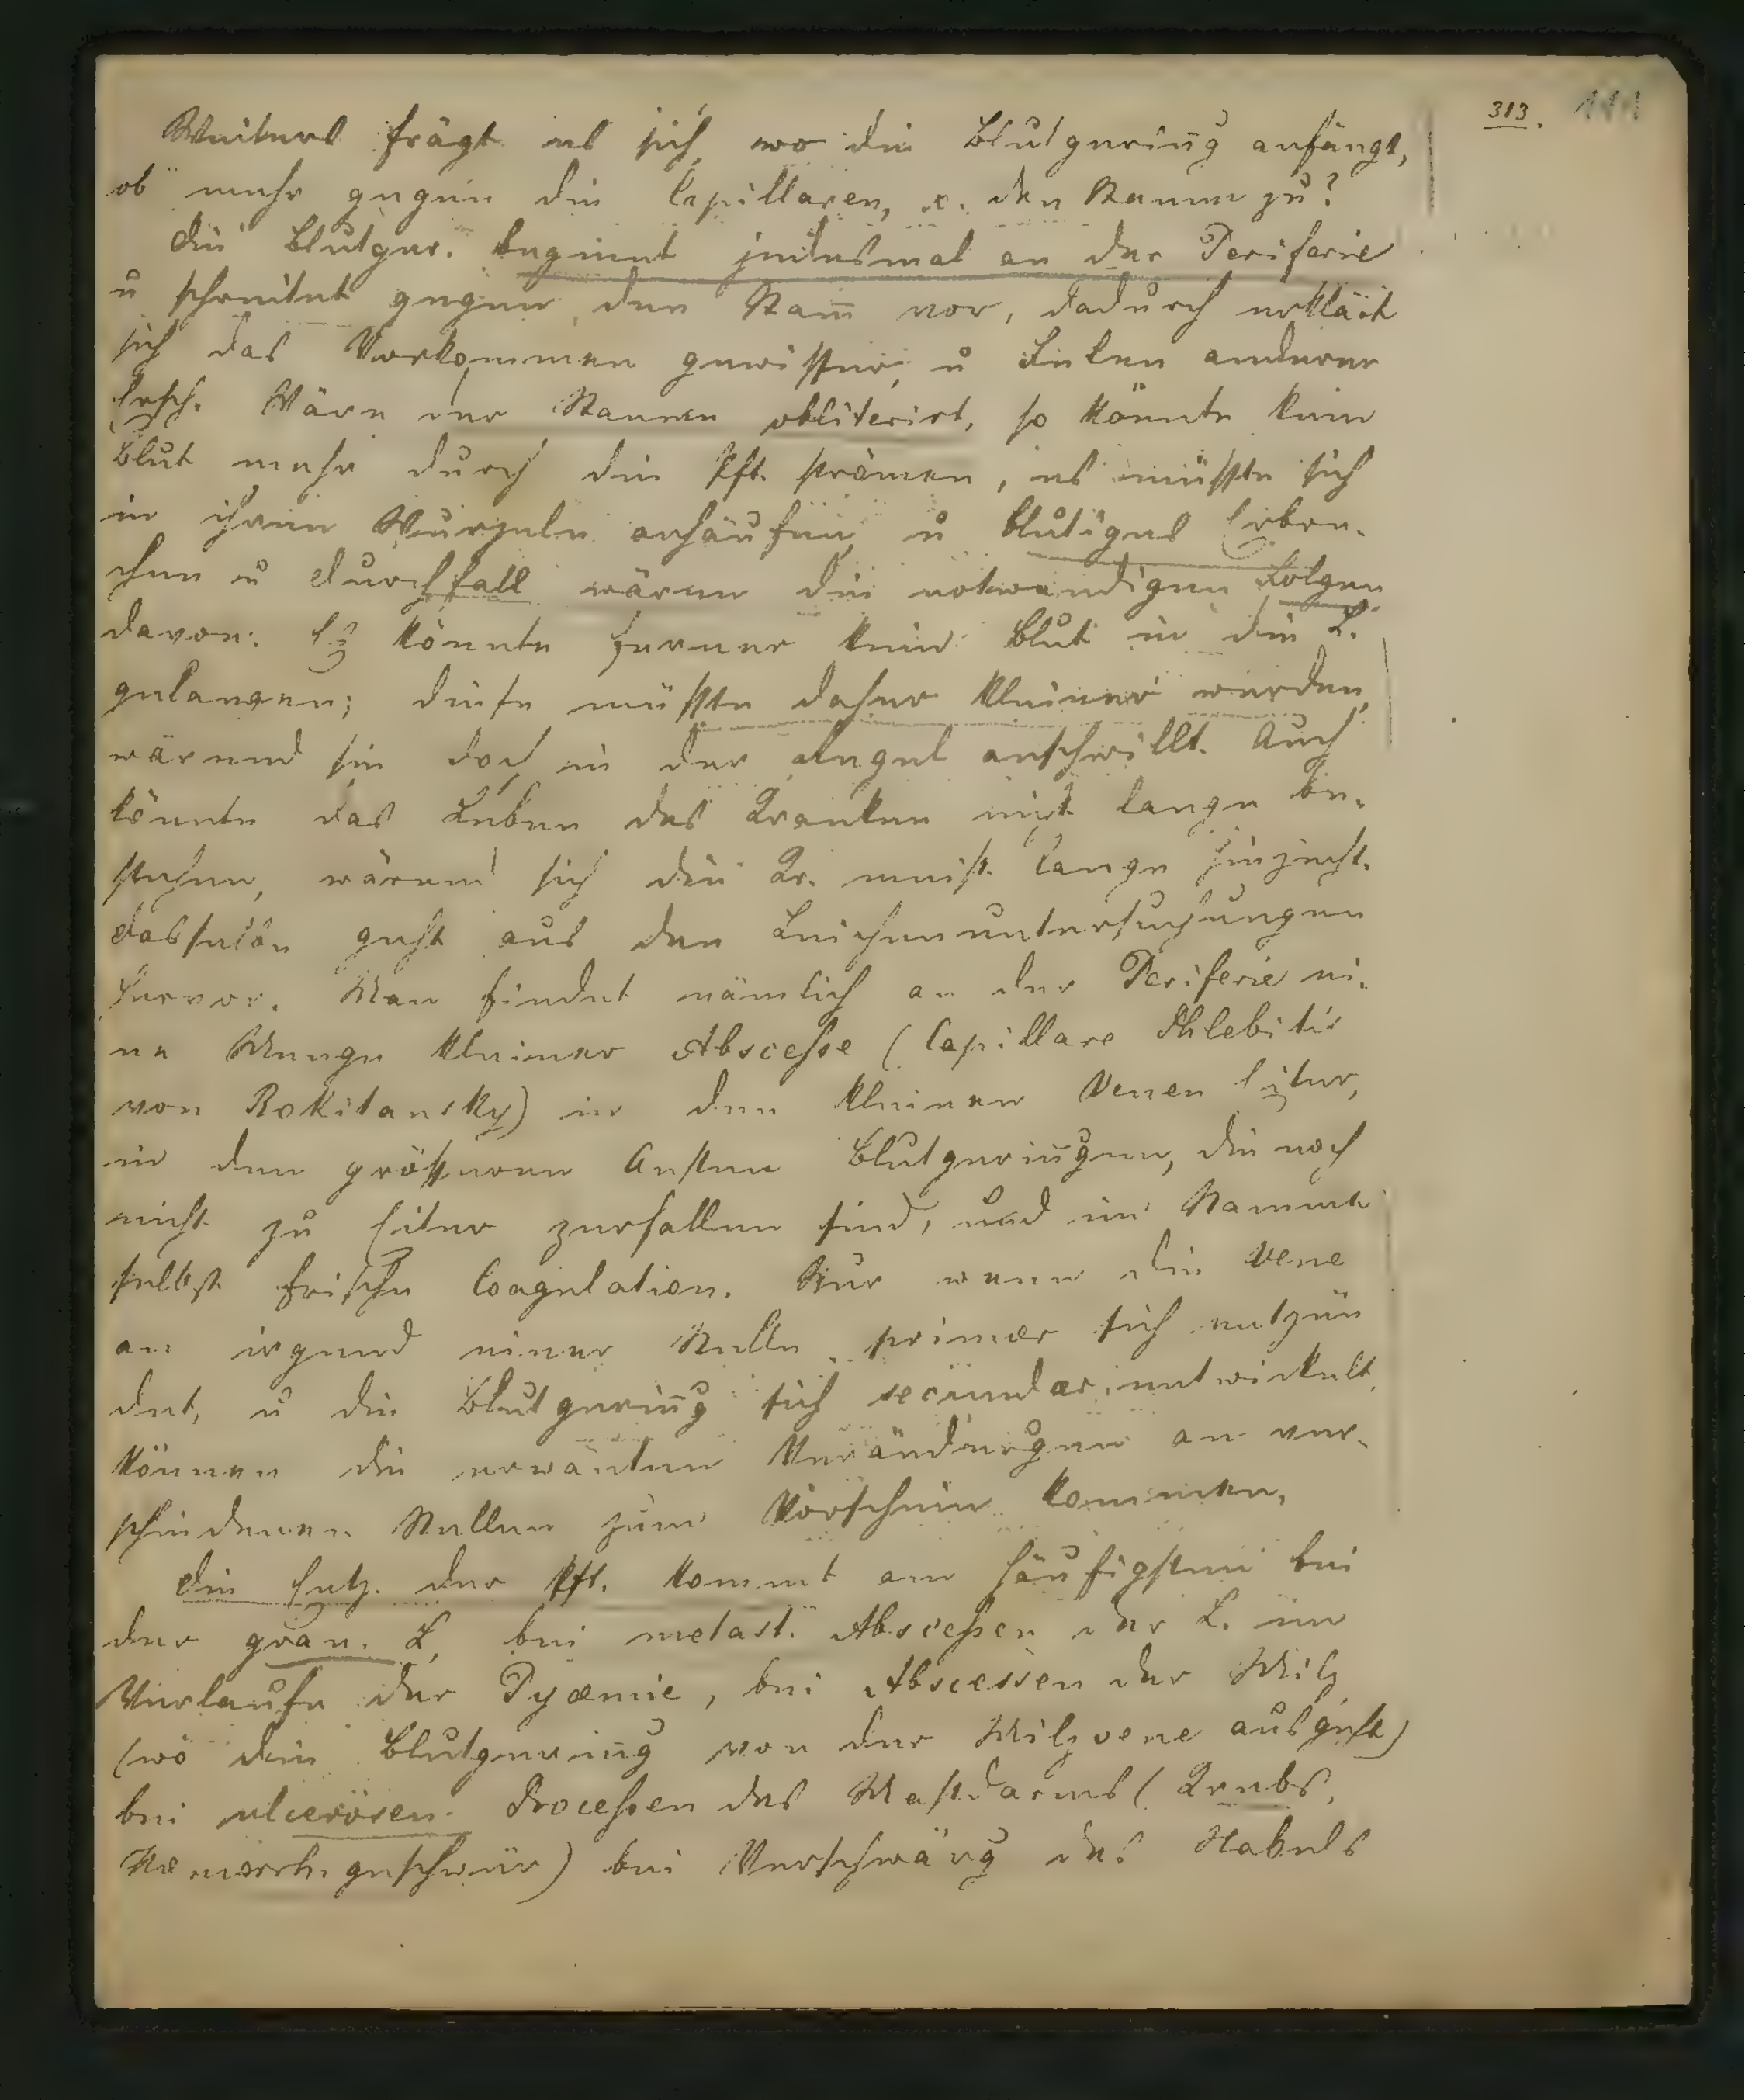 313.
Weiters frägt es sich, wo die Blutgerinng anfängt,
ob mehr gegen die Capillaren, o. den Stamm zu?
Die Blutger. beginnt jedesmal an der Periferie
u schreitet gegen den Stam̄ vor, dadurch erklärt
sich das Vorkommen gewisser, u Felen anderer
Ersch. Wäre der Stamm obliterirt, so könnte kein
Blut mehr durch die Pft. strömen, es müsste sich
in ihren Wurzeln anhäufen u blutiges Erbre-
chen u Durchfall wären die notwendigen Folgen
davon. Es könnte ferner kein Blut in die L.
gelangen; diese müsste daher kleiner werden,
wärend sie doch in der Regel anschwillt. Auch
könnte das Leben des Kranken nicht lange be-
stehen, wärend sich die Kr. meist lange hinzieht.
Dasselbe geht aus den Leichenuntersuchungen
hervor. Man findet nämlich an der Periferie ei-
ne Menge kleiner Abscesse (Capillare Phlebitis
von Rokitansky) in den kleinen Venen Eiter,
in den grösseren Aesten Blutgerinngen, die noch
nicht zu Eiter zerfallen sind, und im Stamme
selbst frische Coagulation. Nur wenn die Vene
an irgend einer Stelle primær sich entzün
det, u die Blutgerinng sich secundær entwickelt,
können die erwänten Veränderngen an ver-
schiedenen Stellen zum Vorschein kommen.
Die Entz. der Pft. kommt am häufigsten bei
der gran. L, bei metast. Abscessen der L. im
Verlaufe der Pyæmie, bei Abscessen der Milz
(wo die Blutgerinng von der Milzvene ausgeht)
bei ulcerösen Processen des Mastdarms (Krebs,
Hæmorrh. geschwür) bei Verschwärg des Nabels